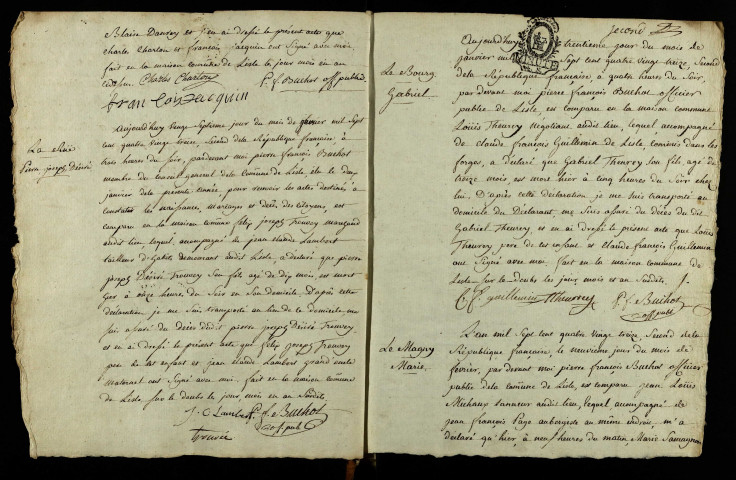 Blaise Dauvrey et j'en ai dressé le présent acte que
Charle Charlon et françois jacquin ont Signé avec moi,
fait en la maison commune de Lisle le jour mois et an
Charles Charlon P. f. Buchot off public
fran coy Jacquin
Le Sieur
Pierre joseph Désiré
Aujourdhuy vingt Septieme jour du mois de janvier mil Sept
cent quatre vingt treize, Second de la République françoise à
trois heures du Soir, pardevant moi pierre françois Buchot
membre du conseil general de la Commune de Lisle, élu le douze
janvier de la presente année, pour recevoir les actes destinés à
constater les naissances, mariages et décès des citoyens, est
comparu en la maison comune felix joseph Trouvey marchand
audit lieu, lequel, accompagné de jean claude Lambert
tailleur d'habits demeurant audit Lisle, a déclaré que pierre
joseph Désiré Trouvey Son fils, agé de dix mois, est mort
hier à onze heures du Soir en Son domicile. D'après cette
déclaration je me Suis transporté au lieu de ce domicile, me
suis assuré du décès dudit pierre joseph Désiré Trouvey
et en ai dressé le présent acte que felix joseph Trouvey
pere de cet enfant et jean claude Lambert grand oncle
maternel ont Signé avec moi. fait en la maison comune
de Lisle sur le doubs le jour, mois et an Susdits
J. C Lambert P. f. Buchot
off publ
trouvée
Second
MINUTE
Le Bourg
Gabriel
Aujourdhuy trentieme jour du mois de
janvier mil Sept cent quatre vingt treize, Second
de la République françoise, à quatre heures du Soir,
par devant moi pierre françois Buchot officier
public de Lisle, est comparu en la maison commune
Loüis Theurey Negotiant audit lieu, lequel accompagné
de claude françois Guillemin de Lisle comis dans les
forges, a déclaré que Gabriel Theurey Son fils, agé de
treize mois est mort hier à cinq heures du Soir chez
lui. D'après cette déclaration, je me suis transporté au
domicile du Déclarant, me Suis assuré du décès du dit
Gabriel Theurey, et en ai dressé le présent acte que Loüis
Theurey pere de cet enfant et claude françois Guillemin
ont Signé avec moi. fait en la maison commune de
Lisle Sur le doubs les jour, mois et an Susdits.
C. f. guillemin Theurey P. f. Buchot
off publ
Le Magny
Marie
L'an mil Sept cent quatre vingt treize, Second de la
République françoise, le neuvieme jour du mois de
février, par devant moi pierre françois Buchot officier
public de la comune de Lisle, est comparu jean Loüis
Michaux tanneur audit lieu, lequel accompagné de
jean françois Page aubergiste au même endroit, m'a
déclaré qu'hier, à neuf heures du matin, Marie